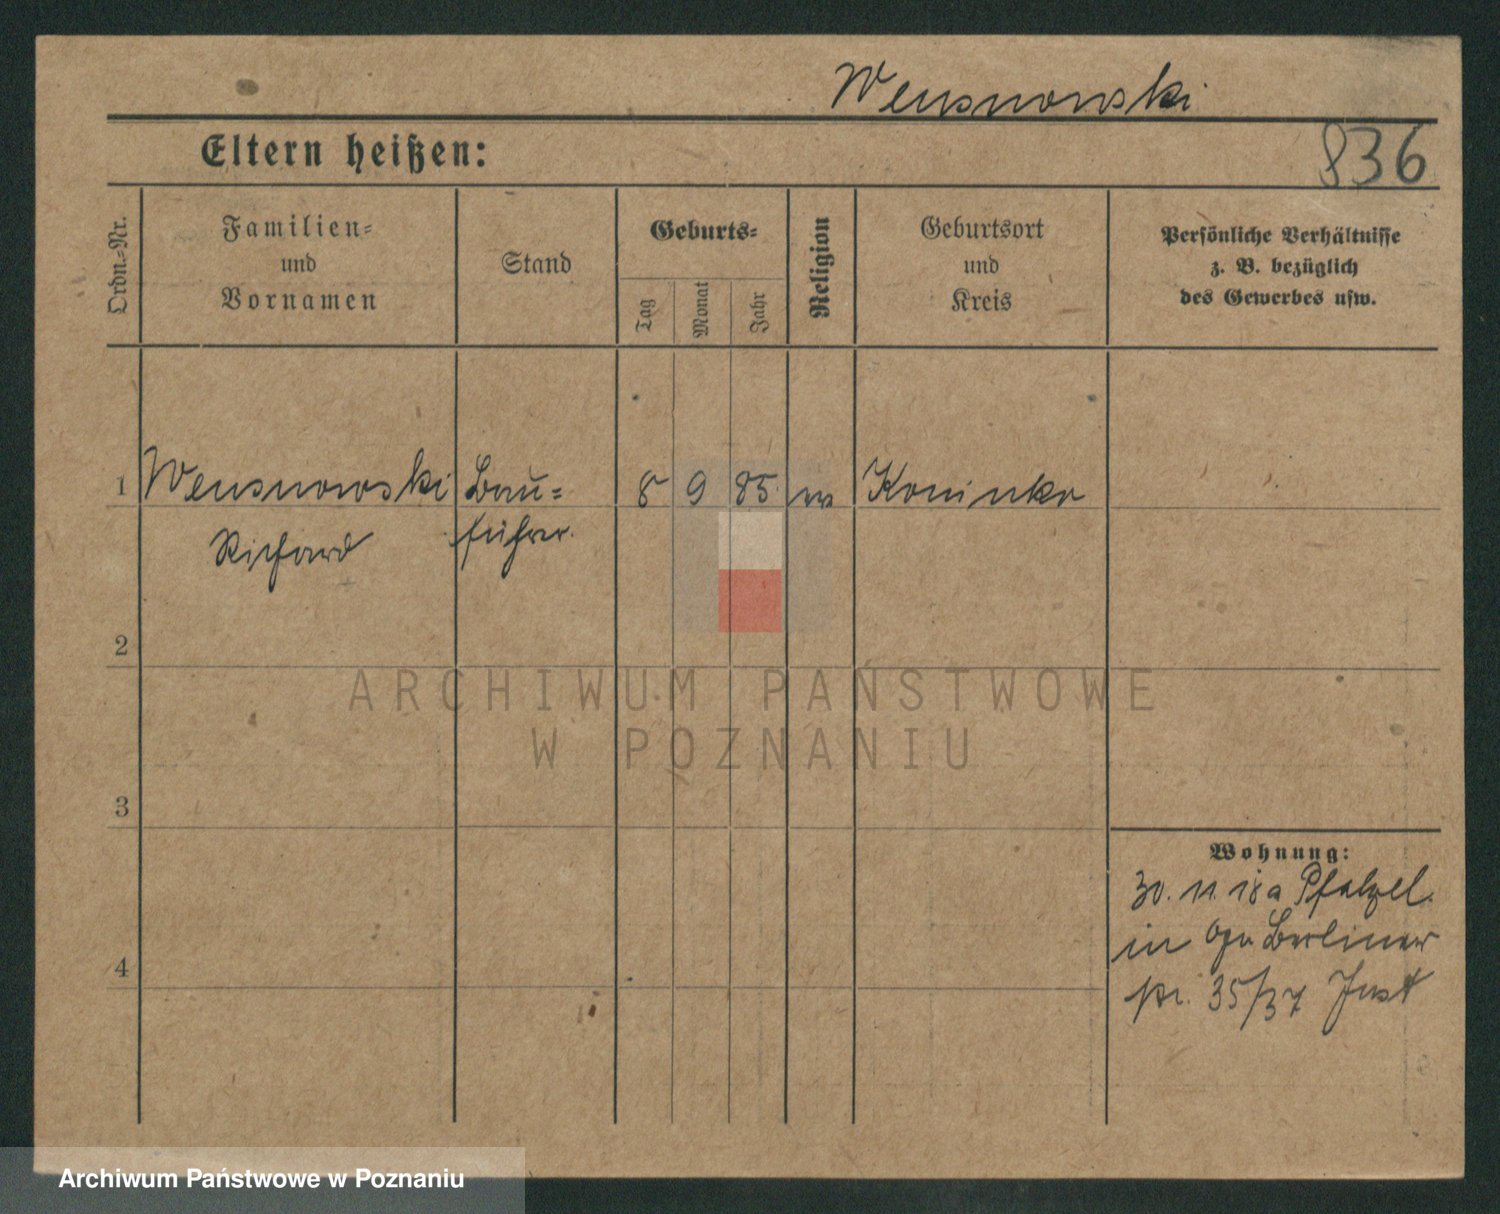 Wensnowski
836
Eltern heißen:
Ordn.-Nr.
Familien-
und
Vornamen
Stand
Geburts-
Tag
Monat
Jahr
Religion
Geburtsort
und
Kreis
Persönliche Verhältnisse
z. B. bezüglich
des Gewerbes usw.
1 Wensnowski Bau- 8 9 85 Koninko
Richard führer.
2
3
4
Wohnung:
30. 11. 18 a Pfalzel.
in Berliner
str. 35/37 Just
ARCHIWUM PAŃSTWOWE
W POZNANIU
Archiwum Państwowe w Poznaniu